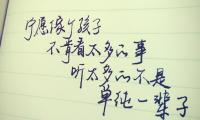 宁愿做个孩子
不肯看太多的事
听太多的不是
单纯一辈子